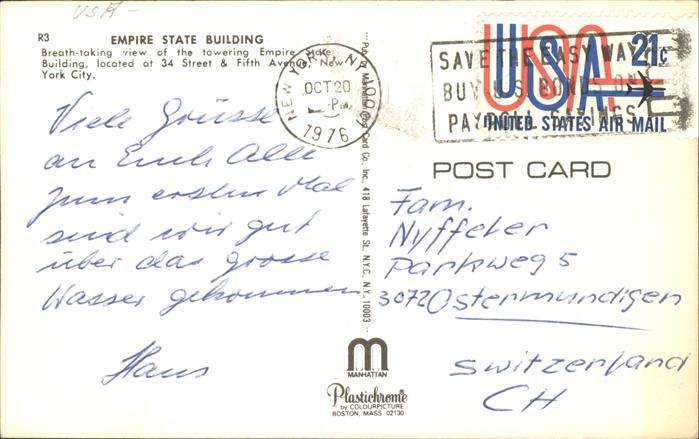 USA-
R3 EMPIRE STATE BUILDING
Breath-taking view of the towering Empire State
Building, located at 34 Street & Fifth Avenue, New
York City.
Viele Grüsse
an Euch Alle
zum ersten Mal
sind wir gut
über das grosse
Wasser gekommen
Hans
Pub. by Manhattan Post Card Co. Inc., 418 Lafayette St., N.Y.C., N.Y. 10003
MANHATTAN
Plastichrome®
by COLOURPICTURE
BOSTON, MASS. 02130
NEW YORK, NY 100
OCT 20
PM
1976
SAVE THE EASY WAY
BUY U.S. BONDS ON
PAYROLL SAVINGS
USA 21c
UNITED STATES AIR MAIL
POST CARD
Fam.
Nyffeler
Parkweg 5
3072 Ostermundigen
Switzerland
CH